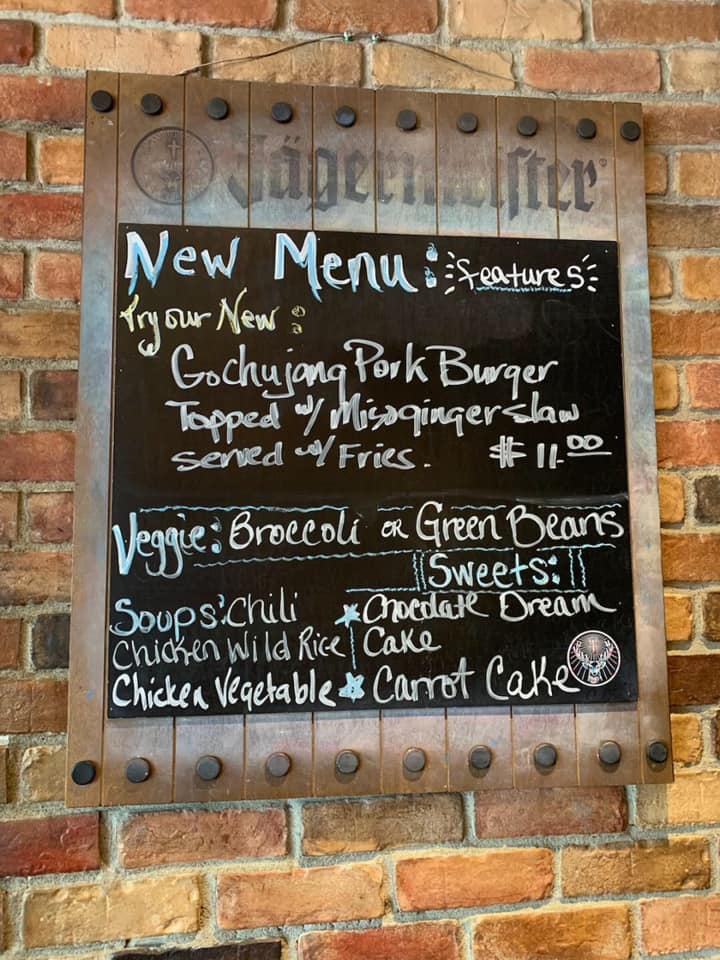 Jägermeister
New Menu: features
Try our New:
Gochujang Pork Burger
Topped w/ Misoginger slaw
served w/ Fries. $11.00
Veggie: Broccoli or Green Beans
Sweets:
Soups: Chili
Chicken Wild Rice
Chicken Vegetable
Chocolate Dream
Cake
Carrot Cake